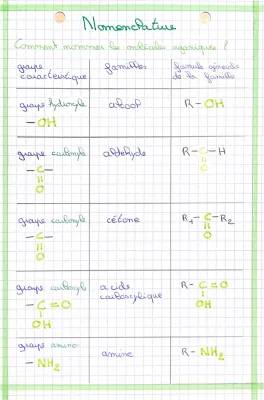 Nomenclature
Comment nommer les molécules organiques ?
groupe caractéristique familles formule générale de la famille
groupe hydroxyle alcool R - OH
- OH
groupe carbonyle aldéhyde R - C - H
- C - O
O
groupe carbonyle cétone R1 - C - R2
- C - O
O
groupe carboxyle acide carboxylique R - C = O
- C = O OH
OH
groupe amino amine R - NH2
- NH2